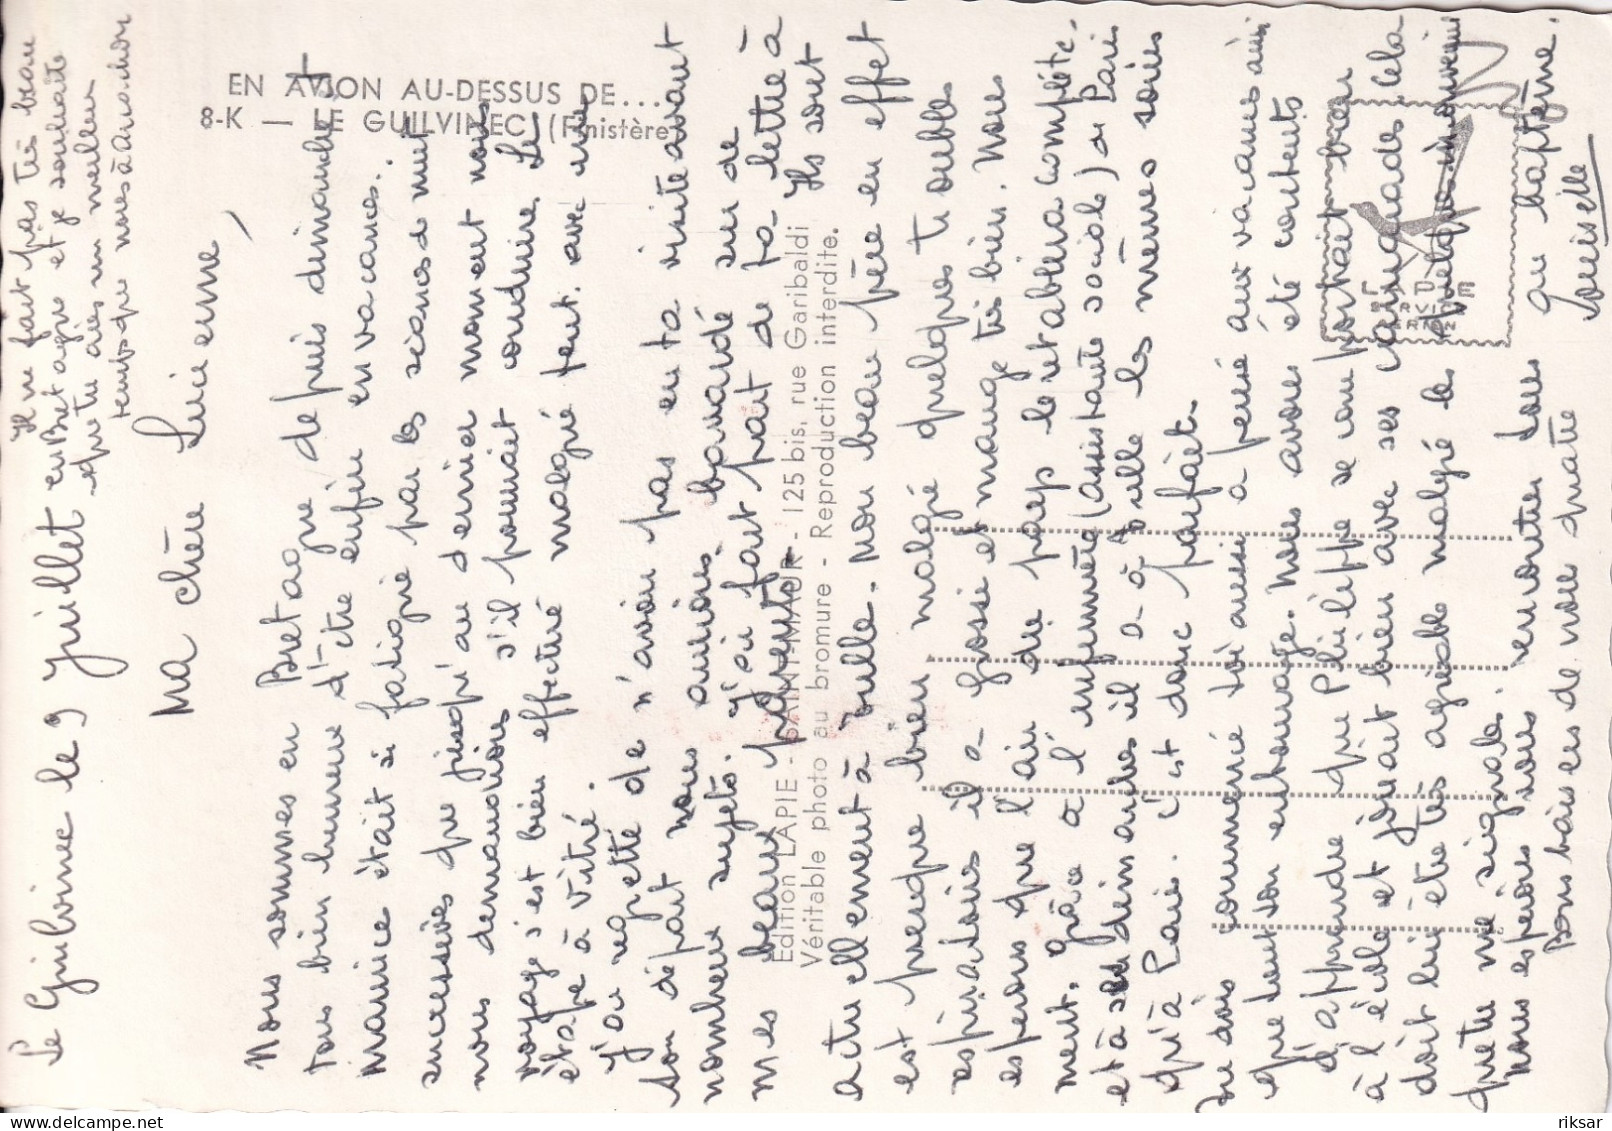 EN AVION AU-DESSUS DE....
8-K — LE GUILVINEC (Finistère)
Edition LAPIE - SAINT-MAUR - 125 bis, rue Garibaldi
Véritable photo au bromure - Reproduction interdite.
Le Guilvinec le 9 juillet
Il ne fait pas très beau
en Bretagne et je souhaite
que tu aies un meilleur
temps que nous à
Ma chère Lucienne,
Nous sommes en Bretagne depuis dimanche
tous bien heureux d'être enfin en vacances.
Maurice était si fatigué par les séances de nuit
successives que jusqu'au dernier moment nous
nous demandions s'il pourrait conduire. Le
voyage s'est bien effectué malgré tout avec une
étape à Vitré.
J'ai regretté de n'avoir pas eu ta visite avant
ton départ nous aurions bavardé sur de
nombreux sujets. J'ai fait part de ta lettre à
mes beaux parents. Ils sont
actuellement à Tulle. Mon beau père en effet
est presque bien malgré quelques troubles
espérons que l'air du pays le rétablira complète-
ment. grâce à l'infirmière (assistante sociale) de Paris
et à ses démarches il a à Tulle les mêmes soins
qu'à Paris. C'est donc parfait.
Tu dois comme toi aussi a pensé aux vacances ainsi
que tout ton entourage. Nous avons été contents
d'apprendre que Philippe se comportait bien
à l'école et jouait bien avec ses camarades. Cela
doit lui être très agréable malgré les quelques
que tu me signales.
Nous espérons nous rencontrer tous au baptême.
Bons baisers de nous quatre